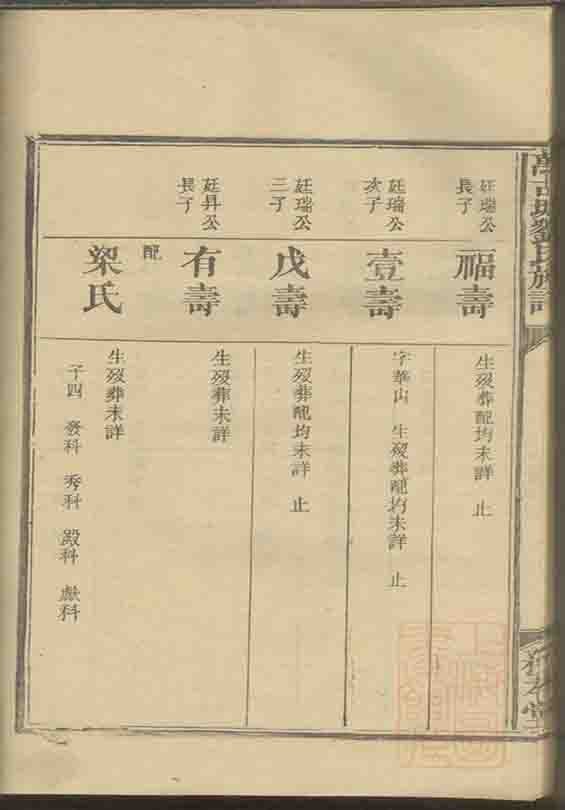 廷瑞公
長子
福壽
生歿葬配均未詳 止
廷瑞公
次子
壹壽
字華山 生歿葬配均未詳 止
廷瑞公
三子
戊壽
生歿葬配均未詳 止
廷昇公
長子
有壽
生歿葬未詳
配
梁氏
生歿葬未詳
子四 發科 秀科 殿科 獻科